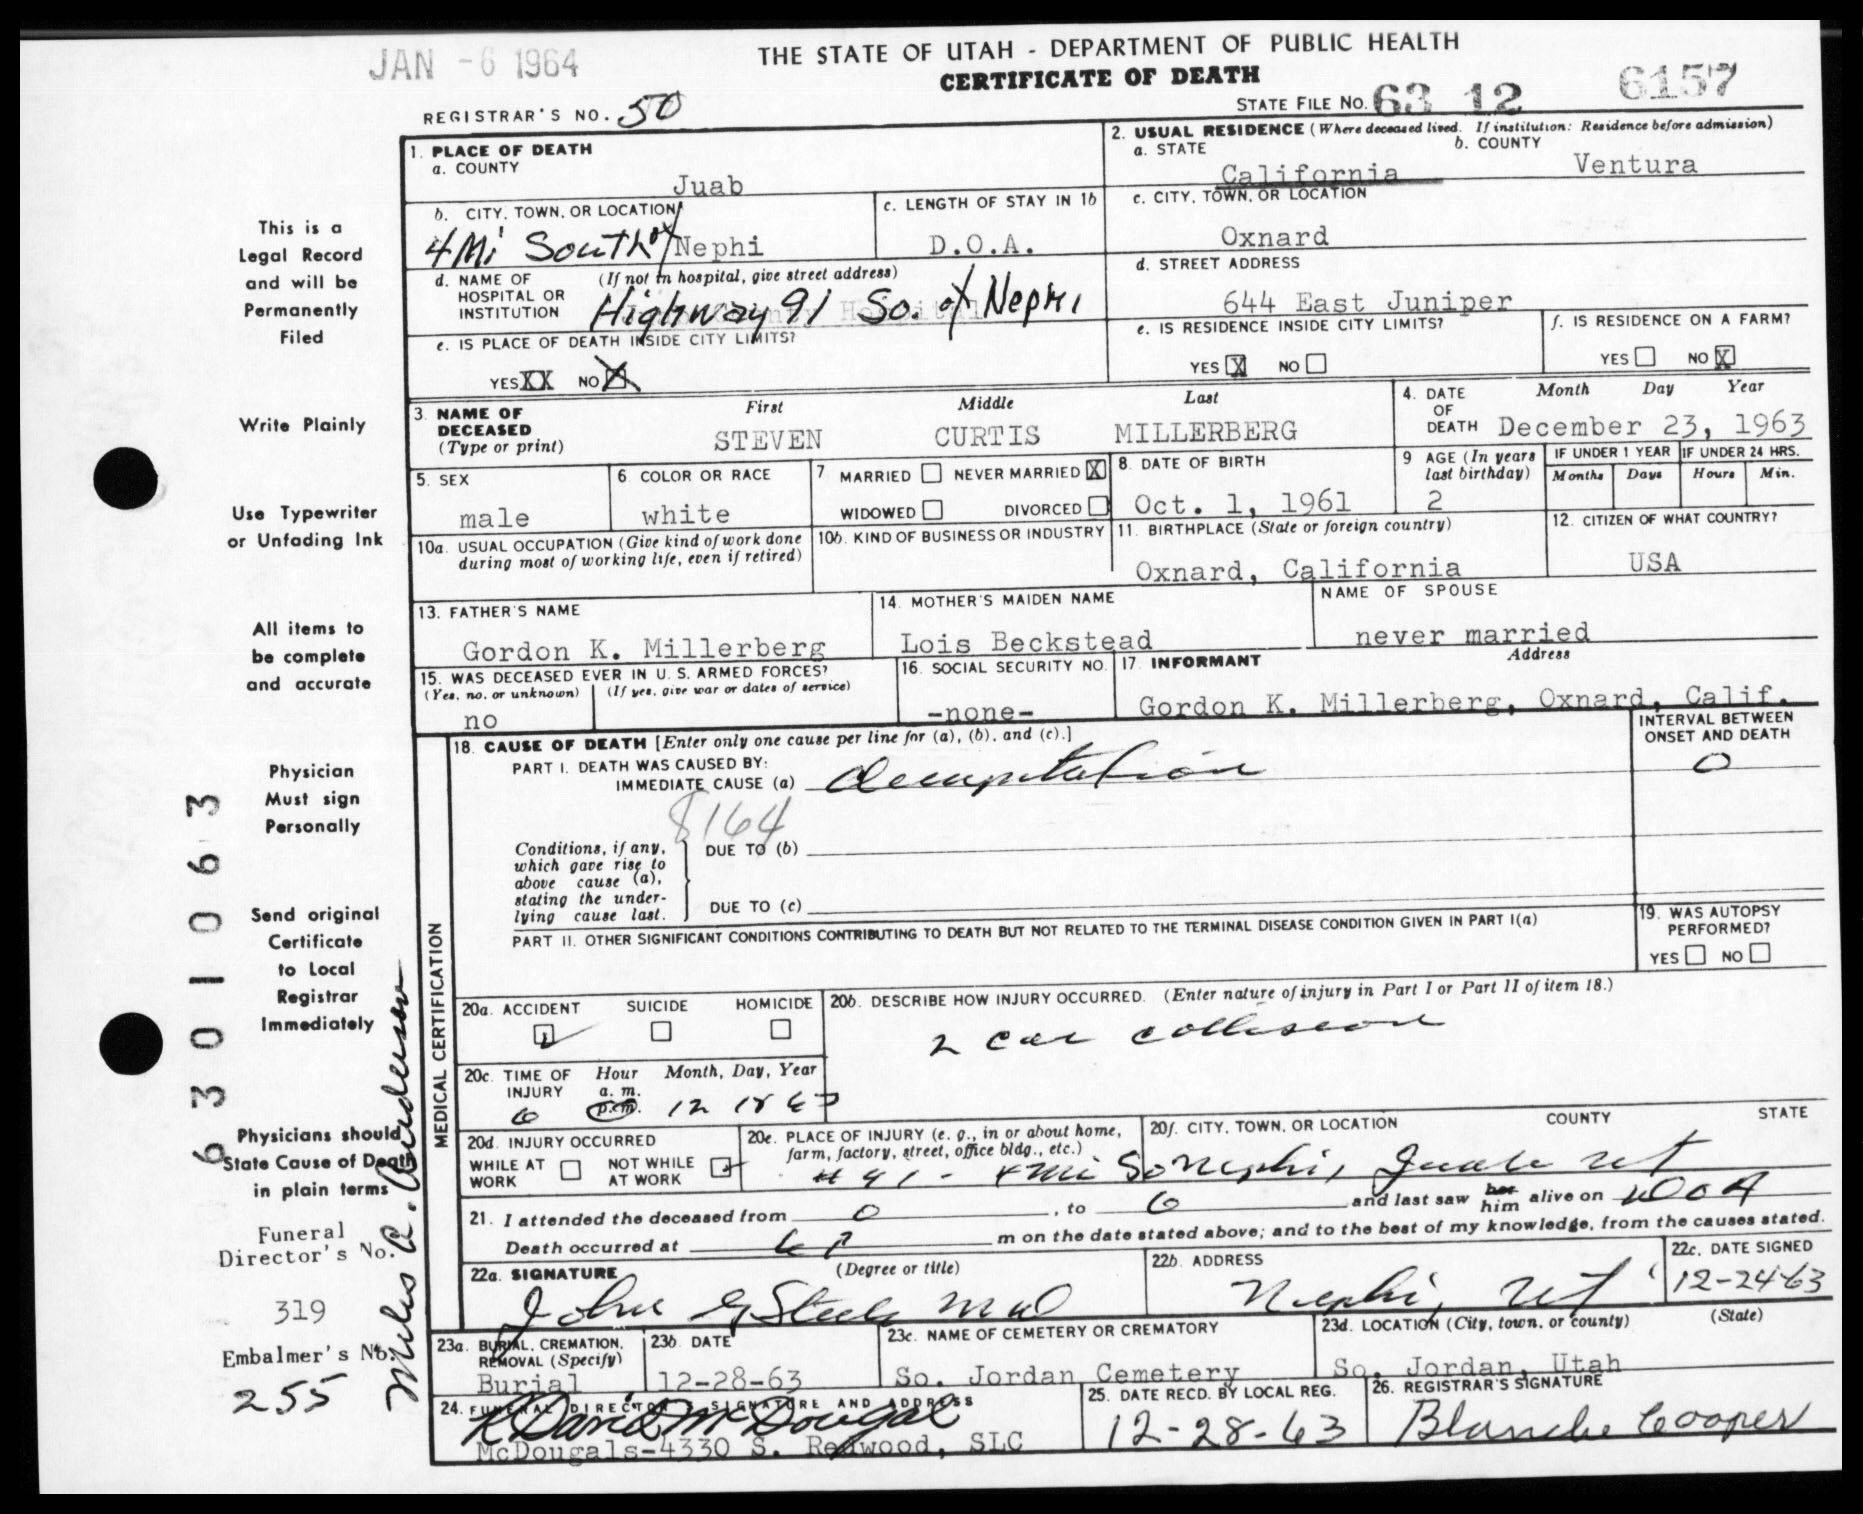 JAN -6 1964
THE STATE OF UTAH - DEPARTMENT OF PUBLIC HEALTH
CERTIFICATE OF DEATH
REGISTRAR'S NO. 50
STATE FILE NO. 63 12 6157
This is a
Legal Record
and will be
Permanently
Filed
Write Plainly
Use Typewriter
or Unfading Ink
All items to
be complete
and accurate
Physician
Must sign
Personally
Send original
Certificate
to Local
Registrar
Immediately
Physicians should
State Cause of Death
in plain terms
Funeral
Director's No.
319
Embalmer's No.
255
6301063
1. PLACE OF DEATH
a. COUNTY
Juab
b. CITY, TOWN, OR LOCATION
4 Mi South of Nephi
c. LENGTH OF STAY IN 1b
D.O.A.
d. NAME OF HOSPITAL OR INSTITUTION (If not in hospital, give street address)
Highway 91 So. of Nephi
e. IS PLACE OF DEATH INSIDE CITY LIMITS?
YES XX NO X
2. USUAL RESIDENCE (Where deceased lived. If institution: Residence before admission)
a. STATE
California
b. COUNTY
Ventura
c. CITY, TOWN, OR LOCATION
Oxnard
d. STREET ADDRESS
644 East Juniper
e. IS RESIDENCE INSIDE CITY LIMITS?
YES X NO
f. IS RESIDENCE ON A FARM?
YES NO X
3. NAME OF DECEASED (Type or print)
First Middle Last
STEVEN CURTIS MILLERBERG
4. DATE OF DEATH
Month Day Year
December 23, 1963
5. SEX
male
6 COLOR OR RACE
white
7 MARRIED NEVER MARRIED X
WIDOWED DIVORCED
8. DATE OF BIRTH
Oct. 1, 1961
9 AGE (In years last birthday)
2
IF UNDER 1 YEAR
Months Days
IF UNDER 24 HRS.
Hours Min.
10a. USUAL OCCUPATION (Give kind of work done during most of working life, even if retired)
10b. KIND OF BUSINESS OR INDUSTRY
11. BIRTHPLACE (State or foreign country)
Oxnard, California
12. CITIZEN OF WHAT COUNTRY?
USA
13. FATHER'S NAME
Gordon K. Millerberg
14. MOTHER'S MAIDEN NAME
Lois Beckstead
NAME OF SPOUSE
never married
15. WAS DECEASED EVER IN U. S. ARMED FORCES?
(Yes, no, or unknown) (If yes, give war or dates of service)
no
16. SOCIAL SECURITY NO.
-none-
17. INFORMANT Address
Gordon K. Millerberg, Oxnard, Calif.
MEDICAL CERTIFICATION
18. CAUSE OF DEATH [Enter only one cause per line for (a), (b), and (c).]
PART I. DEATH WAS CAUSED BY:
IMMEDIATE CAUSE (a)
INTERVAL BETWEEN ONSET AND DEATH
0
8164
Conditions, if any, which gave rise to above cause (a), stating the underlying cause last.
DUE TO (b)
DUE TO (c)
PART II. OTHER SIGNIFICANT CONDITIONS CONTRIBUTING TO DEATH BUT NOT RELATED TO THE TERMINAL DISEASE CONDITION GIVEN IN PART I(a)
19. WAS AUTOPSY PERFORMED?
YES NO
20a. ACCIDENT SUICIDE HOMICIDE
20b. DESCRIBE HOW INJURY OCCURRED. (Enter nature of injury in Part I or Part II of item 18.)
2 car collision
20c. TIME OF INJURY
Hour Month, Day, Year
a. m.
6 p.m. 12
20d. INJURY OCCURRED
WHILE AT WORK NOT WHILE AT WORK
20e. PLACE OF INJURY (e. g., in or about home, farm, factory, street, office bldg., etc.)
# 91 - 4 mi So Nephi, Juab Ut
20f. CITY, TOWN, OR LOCATION COUNTY STATE
21. I attended the deceased from 0, to 0 and last saw her him alive on DOA
Death occurred at 6 P m on the date stated above; and to the best of my knowledge, from the causes stated.
22a. SIGNATURE (Degree or title)
John G Steele MD
22b. ADDRESS
Nephi, Ut
22c. DATE SIGNED
12-24-63
23a. BURIAL, CREMATION, REMOVAL (Specify)
Burial
23b. DATE
12-28-63
23c. NAME OF CEMETERY OR CREMATORY
So. Jordan Cemetery
23d. LOCATION (City, town, or county) (State)
So. Jordan, Utah
24. FUNERAL DIRECTOR'S SIGNATURE AND ADDRESS
David McDougal
McDougals-4330 S. Redwood, SLC
25. DATE RECD. BY LOCAL REG.
12-28-63
26. REGISTRAR'S SIGNATURE
Blanche Cooper